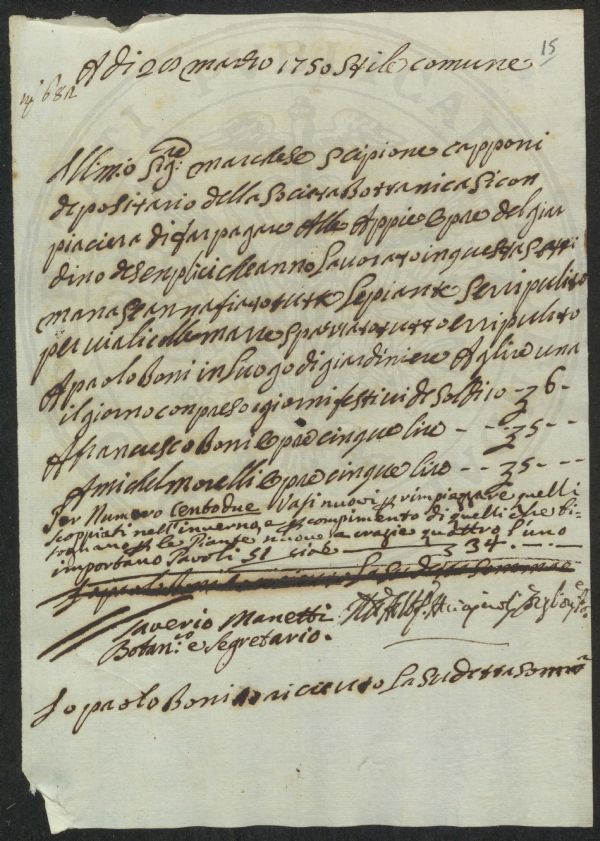 15
A di 20 marzo 1750 Stile comune
N° 682
Ill.mo Sig.re marchese Scipione Capponi
depositario della Società Bottanica Si con
piacerà di far pagare Alle Appie Opre del giar
dino de senplici che anno Lavorato in questa Setti
mana e ann afiato tutte Le piante Serri pulito
per viali colle marre Spazzato tutto e rripulito
A paolo Boni in Luogo di giardiniere A lire una
il giorno conpreso i giorni festivi de Soldi 10 -- £ 6 -
A Francesco Boni Opre cinque lire - - - £ 5 - - -
A michel morelli Opre cinque lire - - - £ 5 - - -
Per Numero Centodue Vasi nuovi p rimpiazzare quelli
scoppiati nell'inverno, e p compimento di quelli che bi-
sognano p le Piante nuove a crazie quattro l'uno
importano Pavoli 51 cioè £ 34. - -
Saverio Manetti
Botan.co e Segretario.
Io paolo Boni o ricevuto La Sudetta Somma